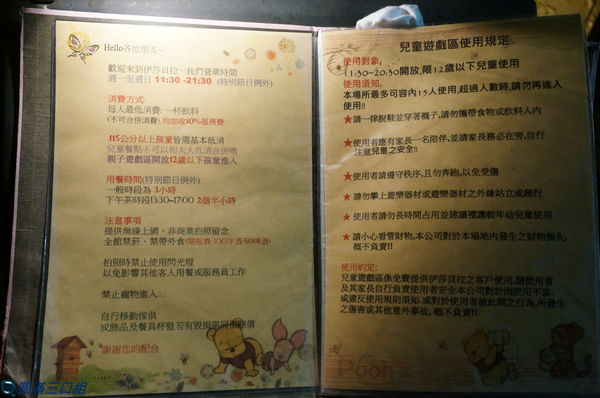 Hello各位朋友~
歡迎來到伊莎貝拉~我們營業時間
週一至週日 11:30 -21:30 (特別節日例外)
消費方式:
每人最低消費: 一杯飲料
(不可合併消費) 均加收10%服務費
115公分以上孩童皆需基本低消
兒童餐點不可以和大人低消合併唷
親子遊戲區開放12歲以下孩童進入
用餐時間(特別節日例外)
一般時段為 3小時
下午茶時段13:30~17:00 2個半小時
注意事項
提供無線上網、非商業拍照留念
全館禁菸、禁帶外食(開瓶費:300洋酒/50啤酒)
拍照時禁止使用閃光燈
以免影響其他客人用餐或服務員工作
禁止寵物進入...
自行移動傢俱
或飾品及餐具杯盤若有毀損
謝謝您的配合
兒童遊戲區使用規定
使用對象:
11:30-20:30開放,限12歲以下兒童使用
使用須知:
本場所最多可容內15人使用,超過人數時,請勿再進入
使用!!
★請一律脫鞋並穿著襪子,請勿攜帶食物或飲料入內
★使用者應有家長一名陪伴,並請家長務必在旁,自行
注意兒童之安全!!
★使用者請遵守秩序,且勿奔跑,以免受傷
★請勿攀上遊樂器材或遊樂器材之外緣站立或爬行
★使用者請勿長時間占用並建議禮讓較年幼兒童使用
★請小心看管財物,本公司對於本場地內發生之財物損失,
概不負責!!
使用約定:
兒童遊戲區係免費提供伊莎貝拉之客戶使用,請使用者
及其家長自行負責使用者安全本公司對於因使用不當,
或違反使用規則須知.或對於使用者彼此間之行為,所發生
之傷害或其他意外事故, 概不負責!!
Pooh
圓滿三口組